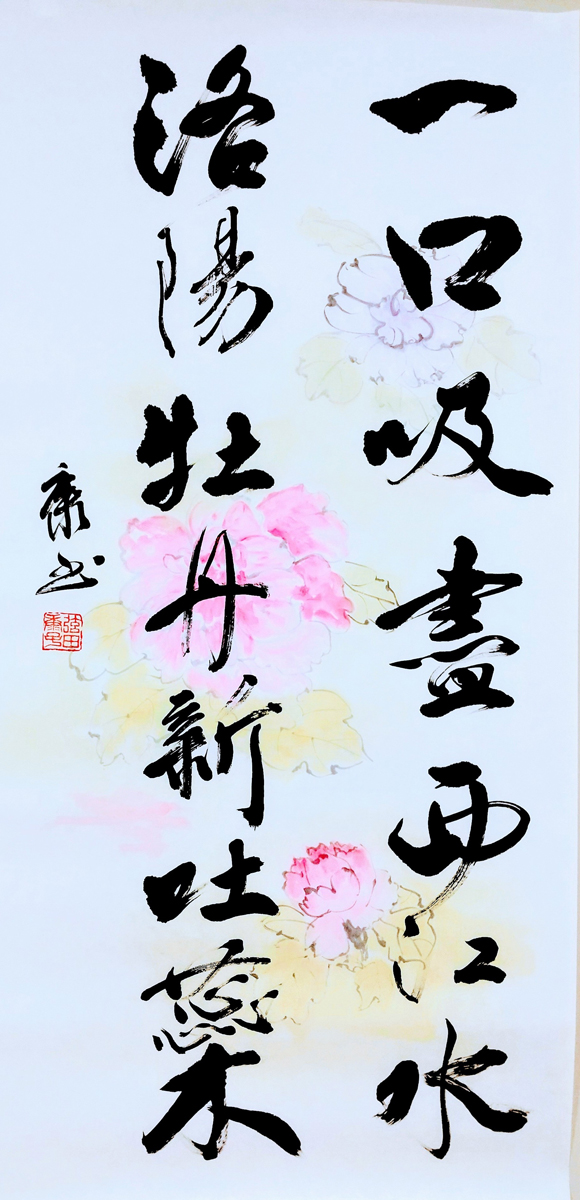 一口吸盡西江水
洛陽牡丹新吐蘂
康书